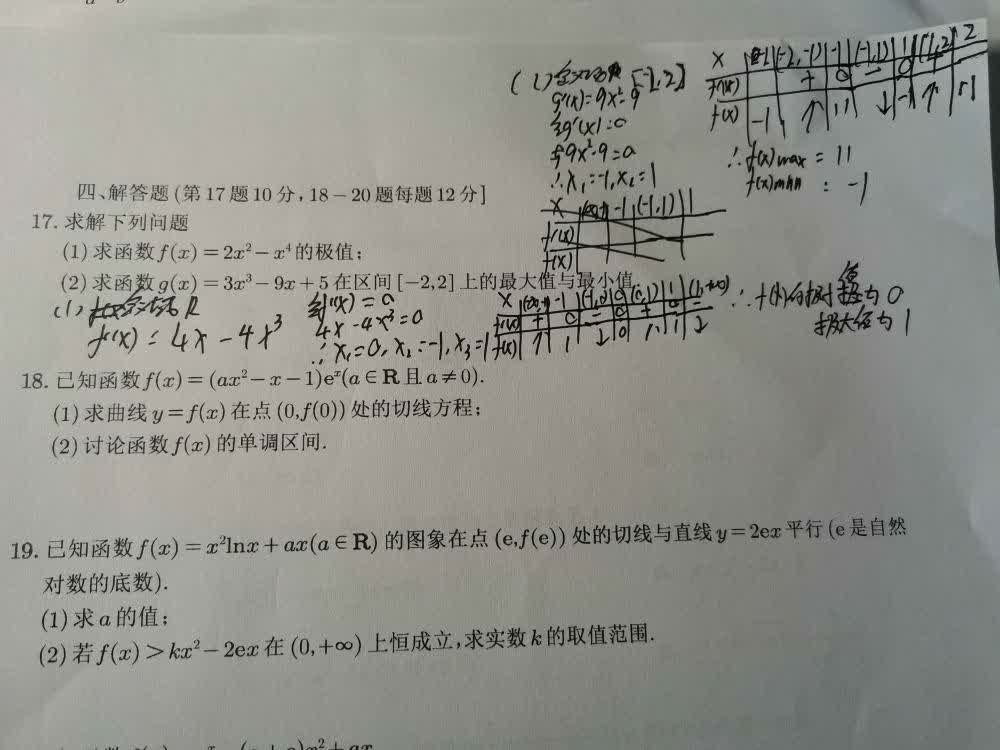 四、解答题(第17题10分,18-20题每题12分]
17. 求解下列问题
(1) 求函数f(x)=2x²-x⁴的极值;
(2) 求函数g(x)=3x³-9x+5在区间[-2,2]上的最大值与最小值
(1) 定义域R
f'(x)=4x-4x³
令f'(x)=0
4x-4x³=0
∴x₁=0, x₂=-1, x₃=1
∴f(x)的极小值为0
极大值为1
[-2,2]
g'(x)=9x²-9
令g'(x)=0
9x²-9=0
∴x₁=-1, x₂=1
x -1 (-1,1) 1
f'(x)
f(x)
x (-2,-1) -1 (-1,1) 1 (1,2) 2
f'(x) + 0 - 0 +
f(x) -1 ↑ 11 ↓ -1 ↑ 11
∴f(x)max=11
f(x)min: -1
18. 已知函数f(x)=(ax²-x-1)eˣ(a∈R且a≠0).
(1) 求曲线y=f(x)在点(0,f(0))处的切线方程;
(2) 讨论函数f(x)的单调区间.
19. 已知函数f(x)=x²lnx+ax(a∈R)的图象在点(e,f(e))处的切线与直线y=2ex平行(e是自然
对数的底数).
(1) 求a的值;
(2) 若f(x)>kx²-2ex在(0,+∞)上恒成立,求实数k的取值范围.